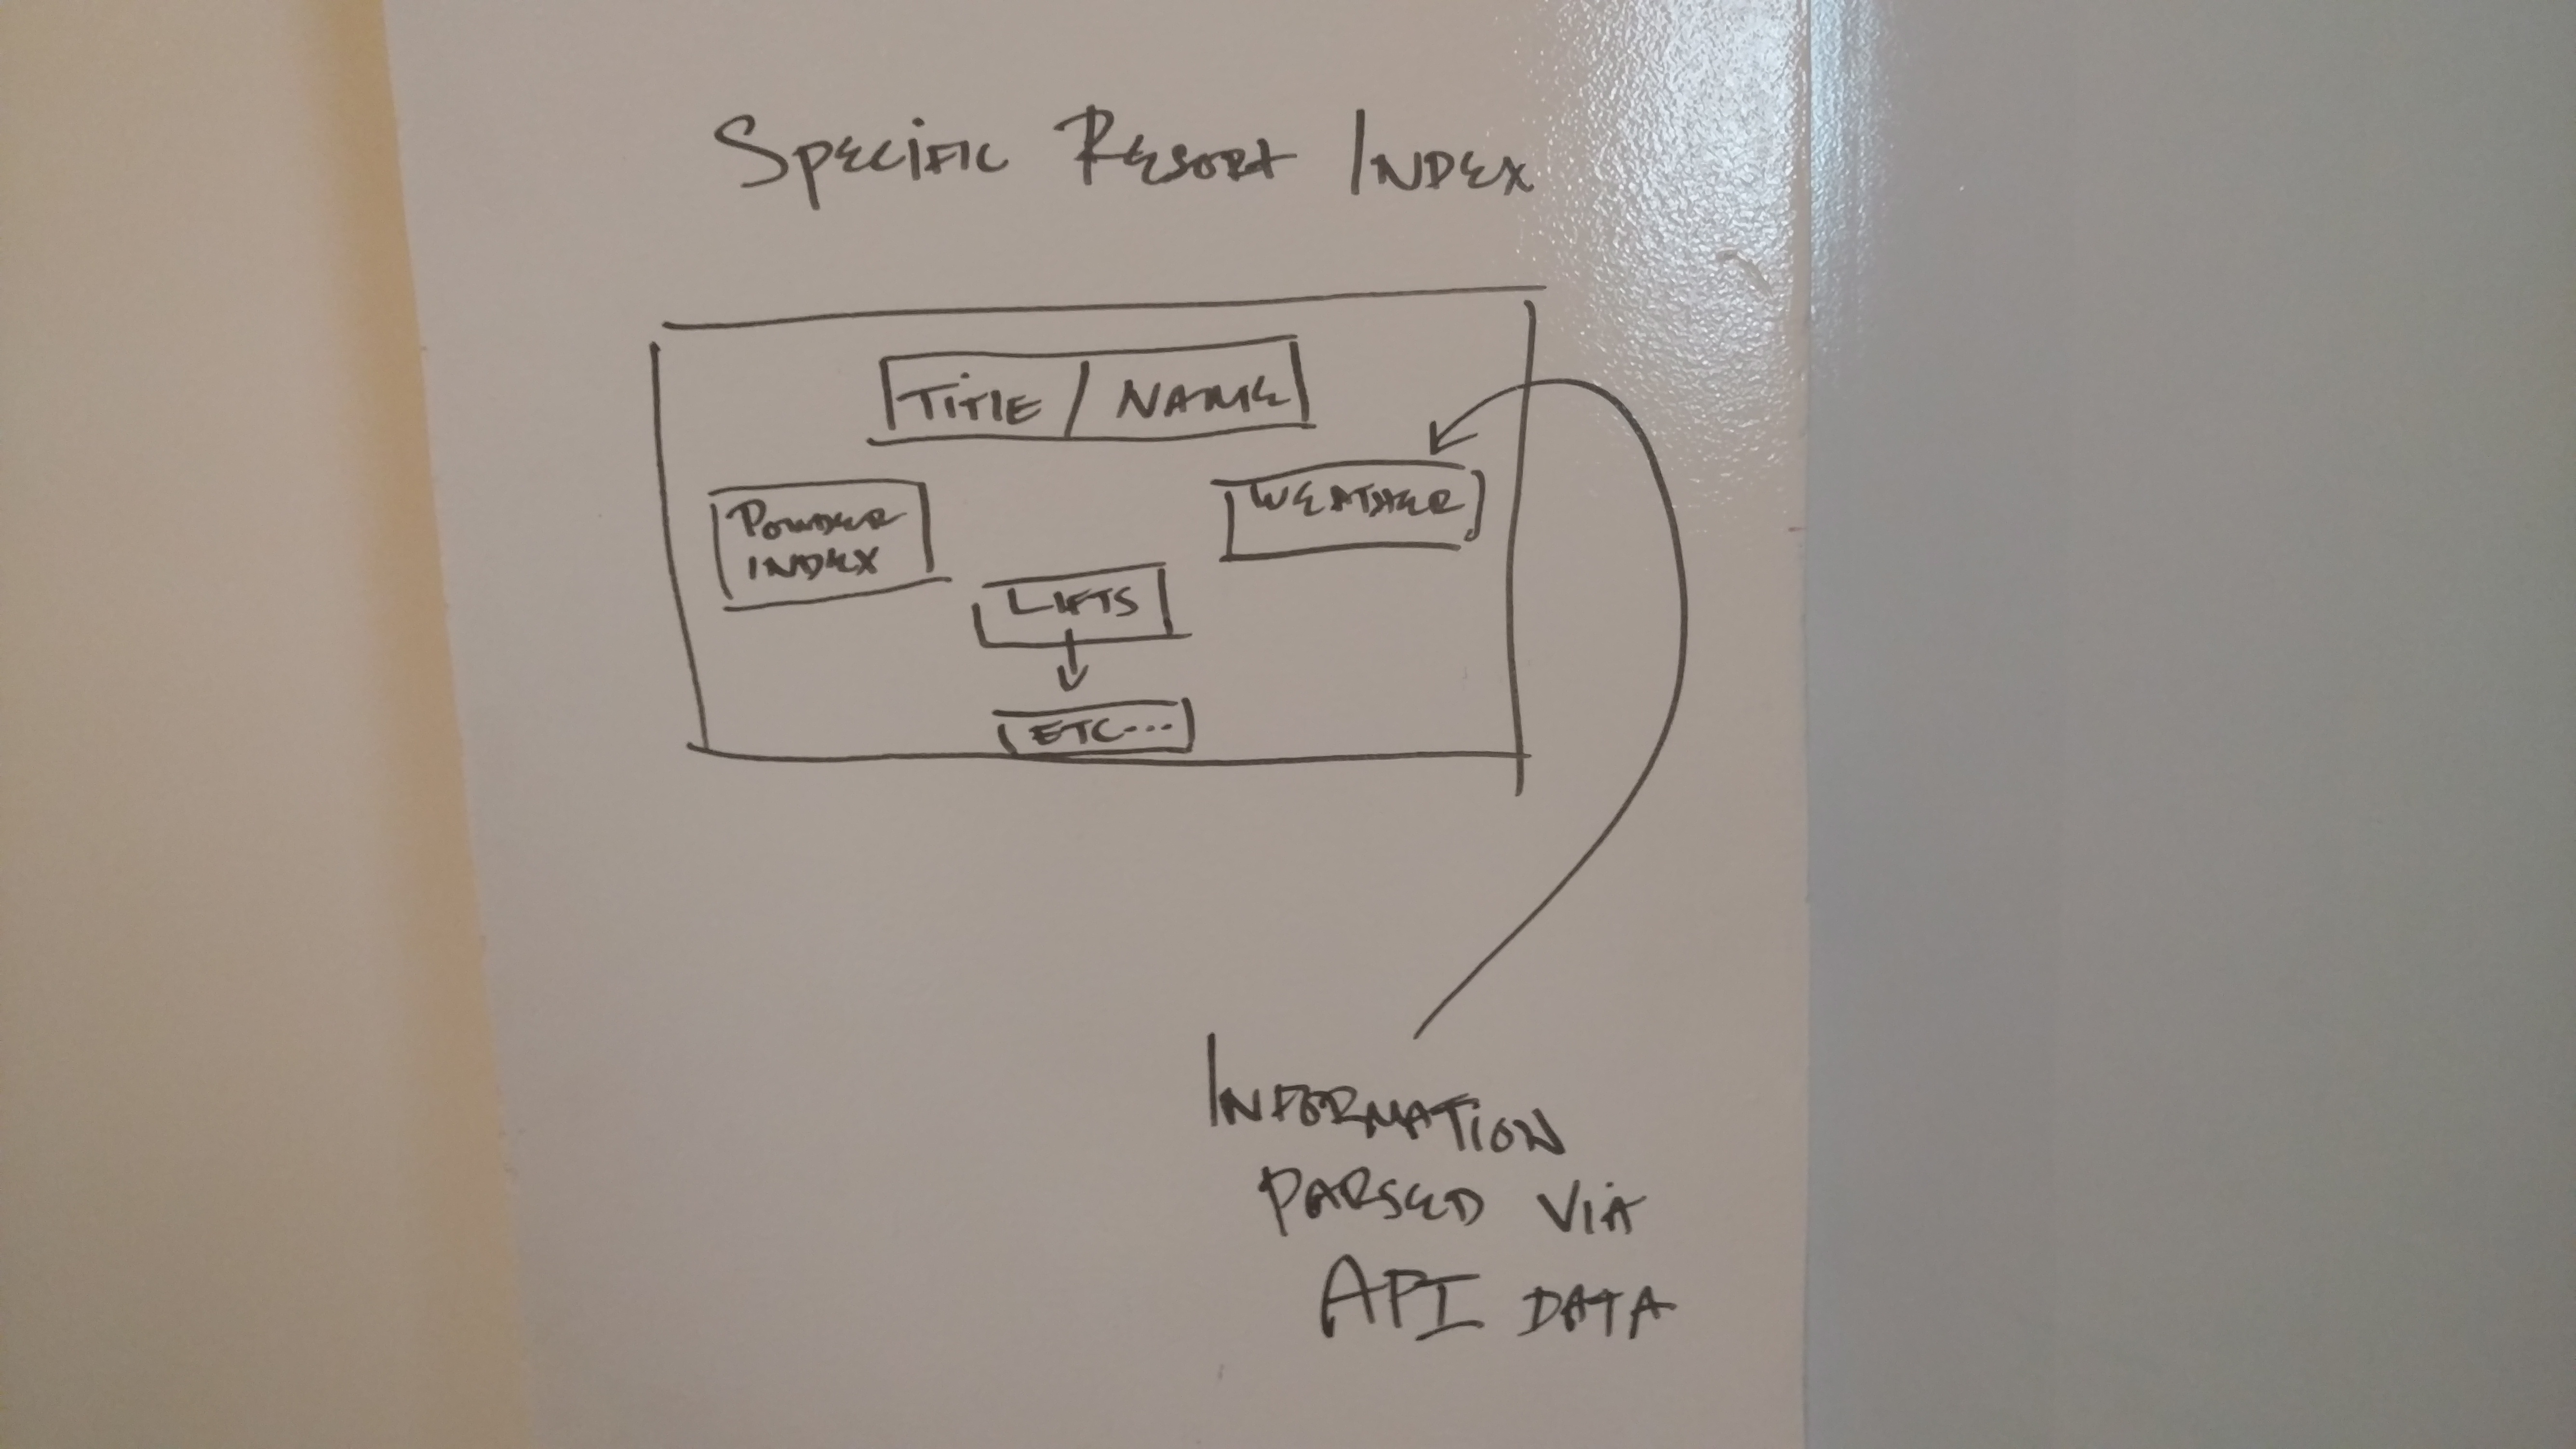 SPECIFIC RESORT INDEX
TITLE / NAME
POWDER
INDEX
WEATHER
LIFTS
ETC...
INFORMATION
PARSED VIA
API DATA